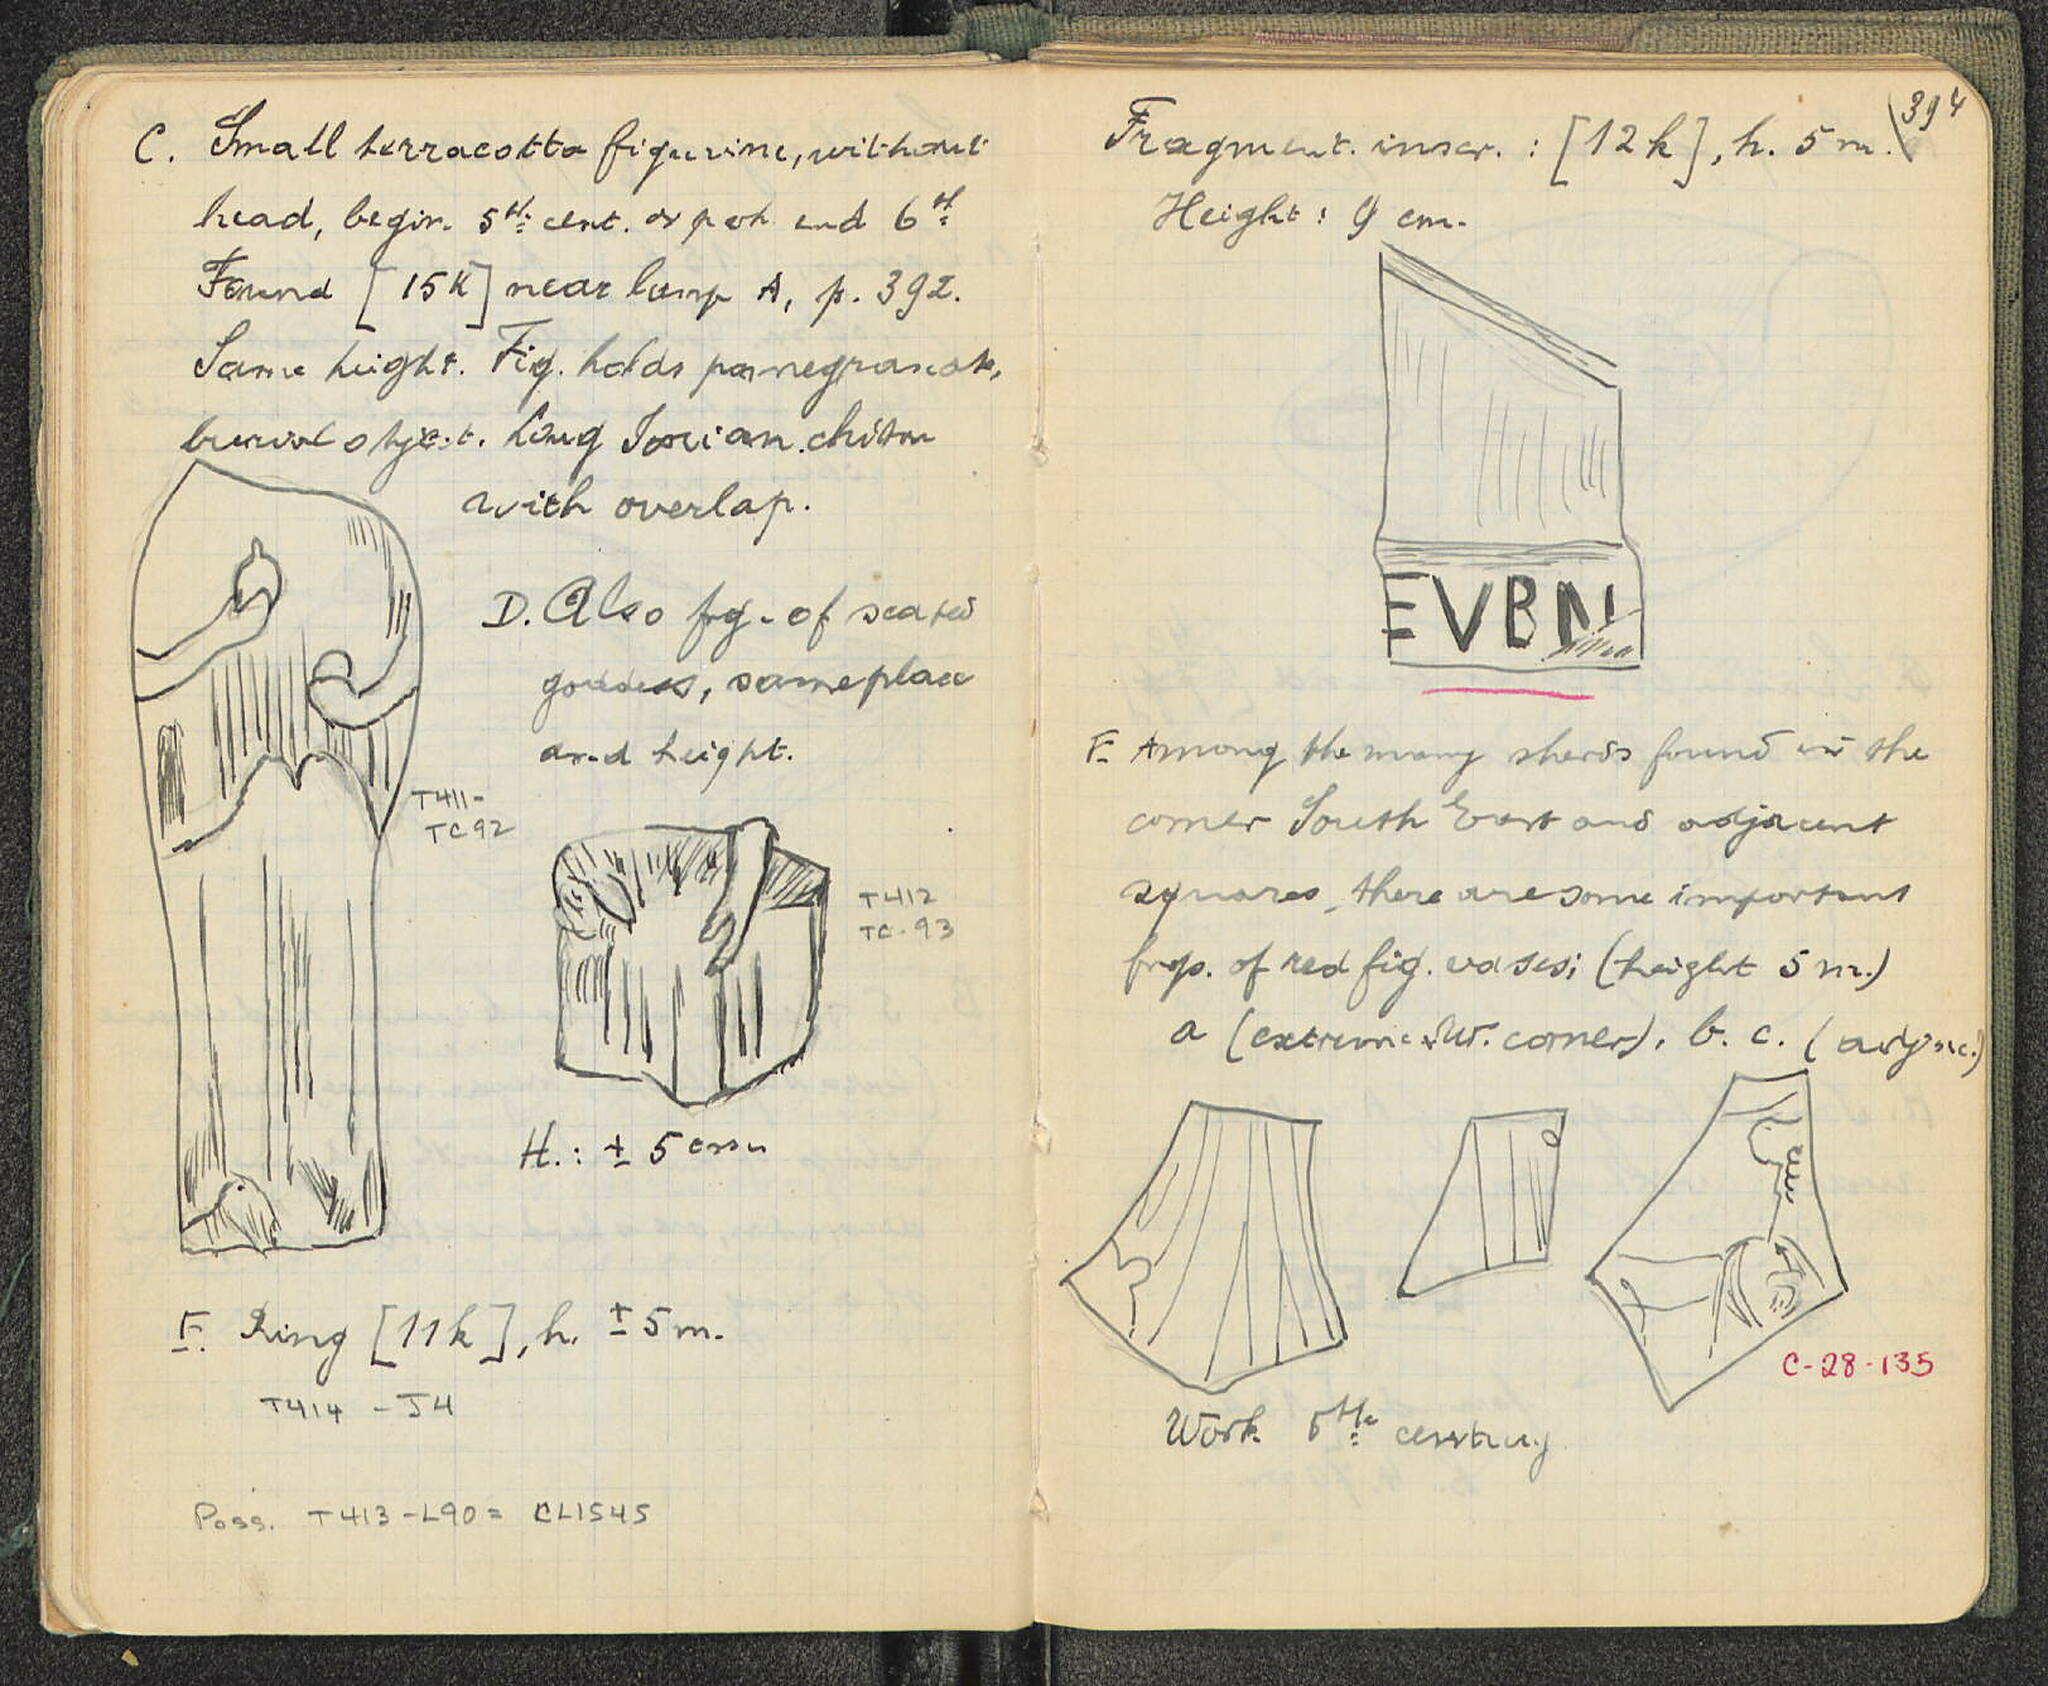 C. Small terracotta figurine, without
head, begin. 5th cent. or end 6th
Found [15K] near lamp A, p. 392.
Same height. Fig. holds pomegranate,
burial object. Long Ionian chiton
with overlap.
D. Also frg. of seated
goddess, same place
and height.
T411-
TC92
T412
TC-93
H.: ± 5 cm
E. Ring [11k], h. ± 5 m.
T414 - J4
Poss. T413-L90 = CL1545
394
Fragment. inscr. : [12k], h. 5 m.
Height: 9 cm.
EVBN
F. Among the many sherds found in the
corner South East and adjacent
squares, there are some important
frgs. of red fig. vases; (height 5 m.)
a (extreme corner), b. c. (adjac.)
C-28-135
Work 5th century